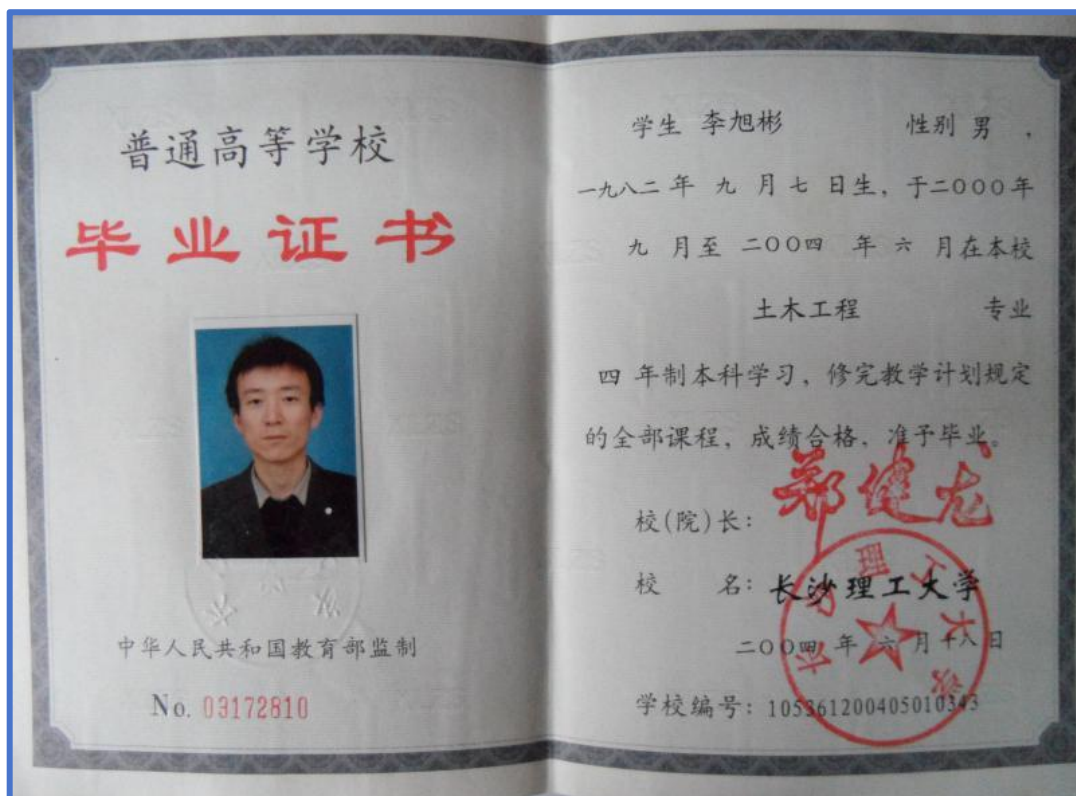 普通高等学校
毕业证书
中华人民共和国教育部监制
No. 03172810
学生 李旭彬 性别 男 ，
一九八二 年 九 月 七 日生，于二000年
九 月至 二00四 年 六 月在本校
土木工程 专业
四 年制本科学习，修完教学计划规定
的全部课程，成绩合格，准予毕业。
校(院)长：郑健龙
校 名：长沙理工大学
二00四 年 六 月十八日
学校编号：105361200405010343
长沙理工大学